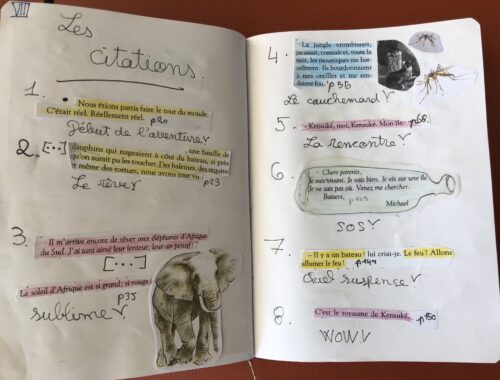 VIII
Les
citations.
1.
Nous étions partis faire le tour du monde.
C'était réel. Réellement réel. p20
Début de l'aventure
2. [...] une famille de
dauphins qui nageaient à côté du bateau, si près
qu'on aurait pu les toucher. Des baleines, des requins
et même des tortues, nous avons tout vu. p23
Le rêve
3.
Il m'arrive encore de rêver aux éléphants d'Afrique
du Sud. J'ai tant aimé leur lenteur, leur air pensif !
[...]
Le soleil d'Afrique est si grand, si rouge !
p35
sublime
4.
La jungle vrombissait,
jacassait, coassait et, toute la
nuit, les moustiques me har-
celèrent. Ils bourdonnaient
à mes oreilles et me ren-
daient fou.
Le cauchemard
5. – Kensuké, moi, Kensuké. Mon île.
La rencontre
6
Chers parents,
Je suis vivant. Je vais bien. Je vis sur une île.
Je ne sais pas où. Venez me chercher.
Baisers,
Michael
SOS
7. – Il y a un bateau ! lui criai-je. Le feu ! Allons
allumer le feu ! p144
Quel suspence
8. C'est le royaume de Kensuké. p150
WOW!